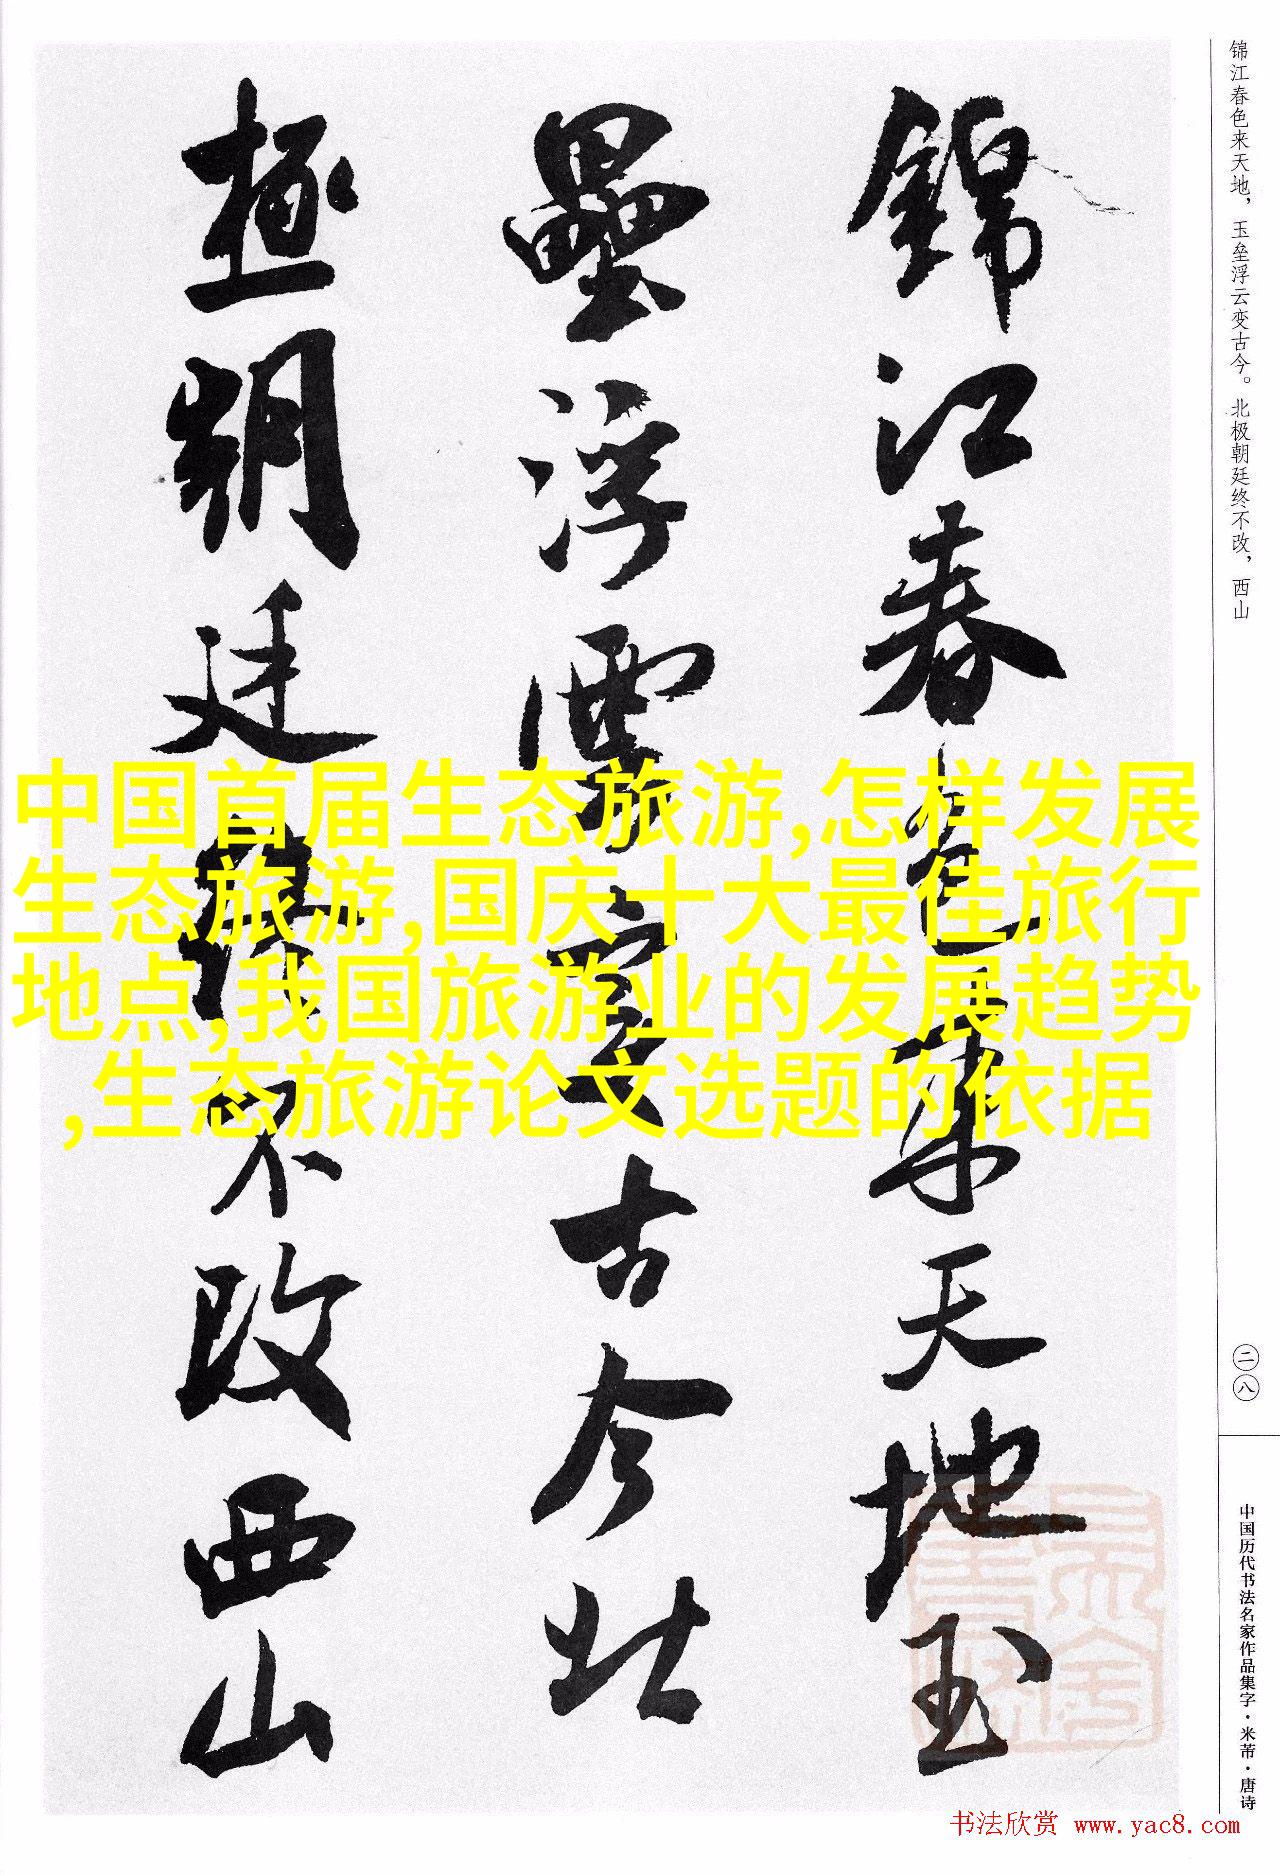 锦江春色来天地，玉垒浮云变古今。北极朝廷终不改，西山
錦江春色来天地玉
壘浮雲變古今北
極朝廷終不改西山
中国首届生态旅游,怎样发展
生态旅游,国庆十大最佳旅行
地点,我国旅游业的发展趋势
,生态旅游论文选题的依据
二八
中国历代书法名家作品集字·米芾·唐诗
书法欣赏 www.yac8.com